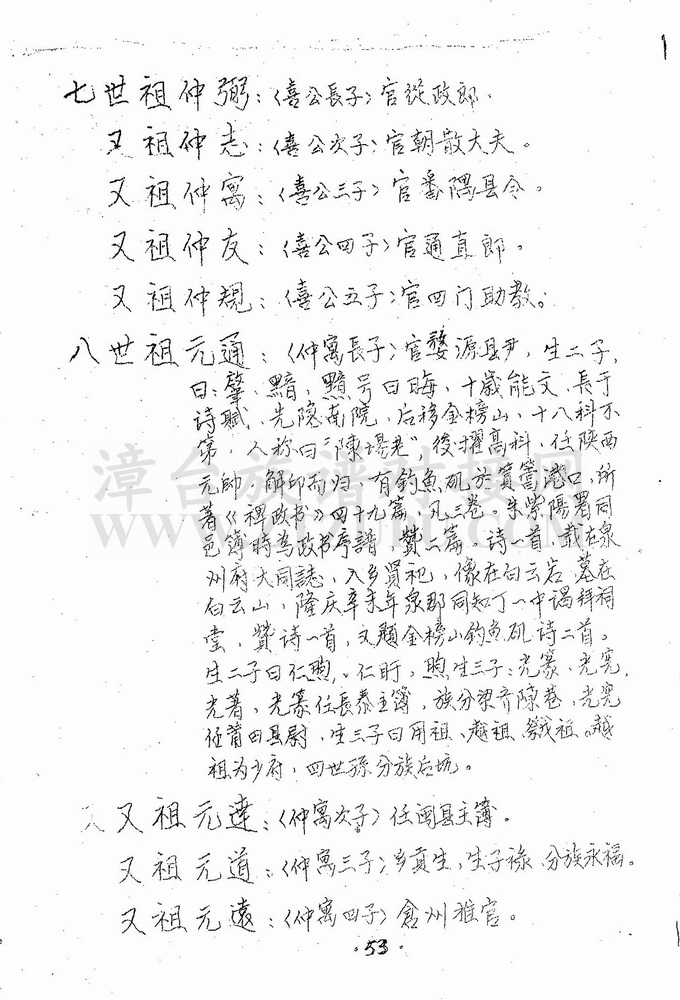 七世祖仲弼：〈喜公長子〉官從政郎。
又祖仲志：〈喜公次子〉官朝散大夫。
又祖仲寓：〈喜公三子〉官番隅县令。
又祖仲友：〈喜公四子〉官通直郎。
又祖仲規：〈喜公五子〉官四门助教。
八世祖元通：〈仲寓長子〉官婺源县尹，生二子，
曰：肇、黯，黯号曰晦，十歲能文，長于
诗赋、先隐南院，后移金榜山，十八科不
第，人称曰"陳場老"，後擢高科，任陕西
元帥，解印而归，有釣魚矶於篔簹港口，所
著《裨政书》四十九篇，凡三卷。朱紫陽署同
邑簿時為政书序譜，贊一篇，诗一首，載在泉
州府大同誌，入乡贤祀，像在白云岩，墓在
白云山，隆庆辛未年泉郡同知丁一中谒拜祠
堂，贊诗一首，又题金榜山釣魚矶诗二首。
生二子曰仁煦、仁盱，煦生三子：光篆、光宪、
光著，光篆任長泰主簿，族分梁齐陳巷，光宪
任莆田县尉，生三子曰用祖、越祖、祖。越
祖为少府，四世孫分族后坑。
又祖元達：〈仲寓次子〉任闽县主簿。
又祖元道：〈仲寓三子〉乡貢生，生子祿，分族永福。
又祖元遠：〈仲寓四子〉倉州推官。
·53·
漳台族谱对接网